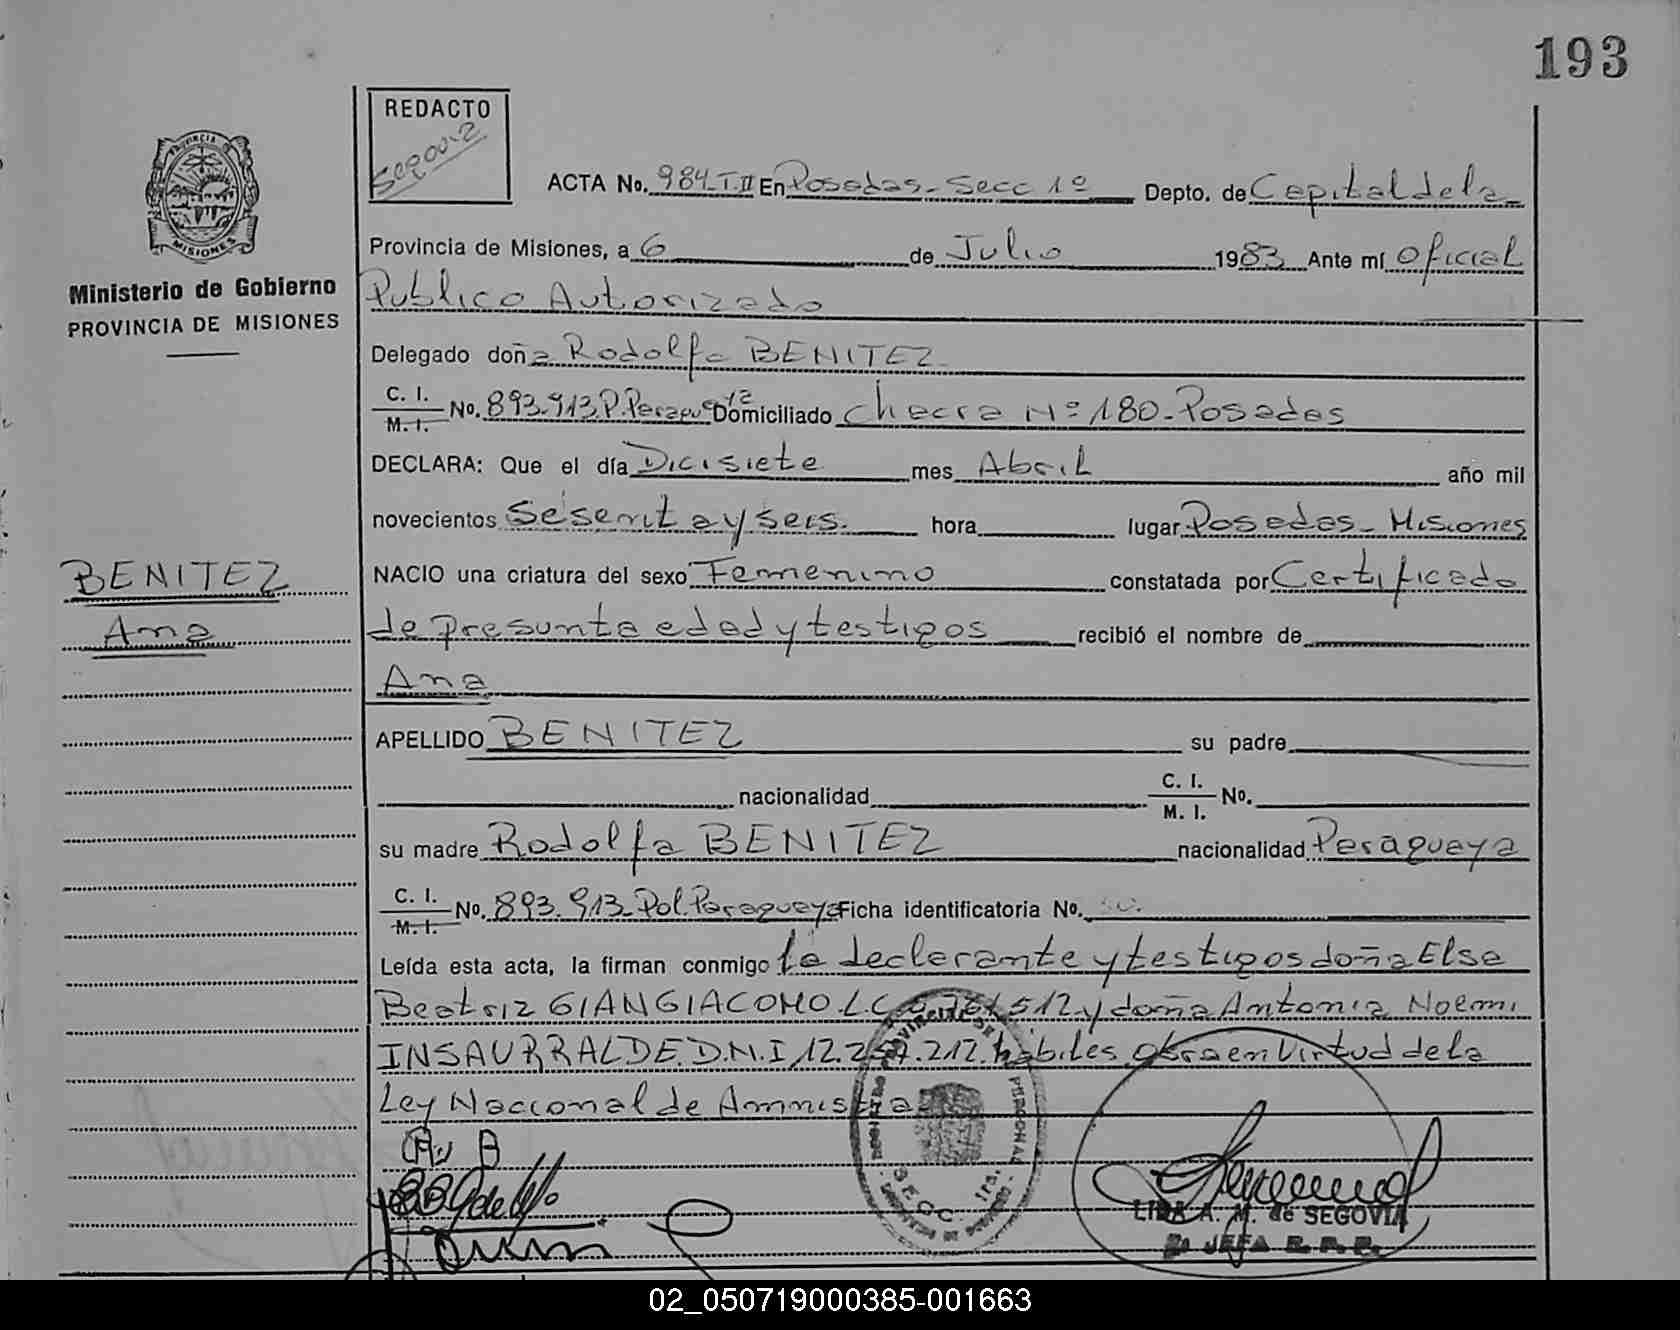 193
REDACTO
ACTA No. 984-T.II En Posadas- Secc 1º Depto. de Capital de la
Provincia de Misiones, a 6 de Julio 1983 Ante mí Oficial
Ministerio de Gobierno
PROVINCIA DE MISIONES
Publico Autorizado
Delegado doña Rodolfa BENITEZ
C. I.
M. I. No. 893.913 P. Paraguaya Domiciliado Chacra Nº 180-Posadas
DECLARA: Que el día Dicisiete mes Abril año mil
novecientos Sesenta y seis. hora lugar Posadas- Misiones
BENITEZ
Ana
NACIO una criatura del sexo Femenino constatada por Certificado
de presunta edad y testigos recibió el nombre de
Ana
APELLIDO BENITEZ su padre
nacionalidad C. I.
M. I. No.
su madre Rodolfa BENITEZ nacionalidad Paraguaya
C. I.
M. I. No. 893.913-Pol. Paraguaya Ficha identificatoria No.
Leída esta acta, la firman conmigo la declarante y testigos doña Elsa
Beatriz GIANGIACOMO. L.C. y doña Antonia Noemi
INSAURRALDE. D.N.I. hábiles. obra en Virtud de la
Ley Nacional de Amnistia
SECC. 1ra.
LIDIA A. M. de SEGOVIA
JEFA R. P. P.
02_050719000385-001663